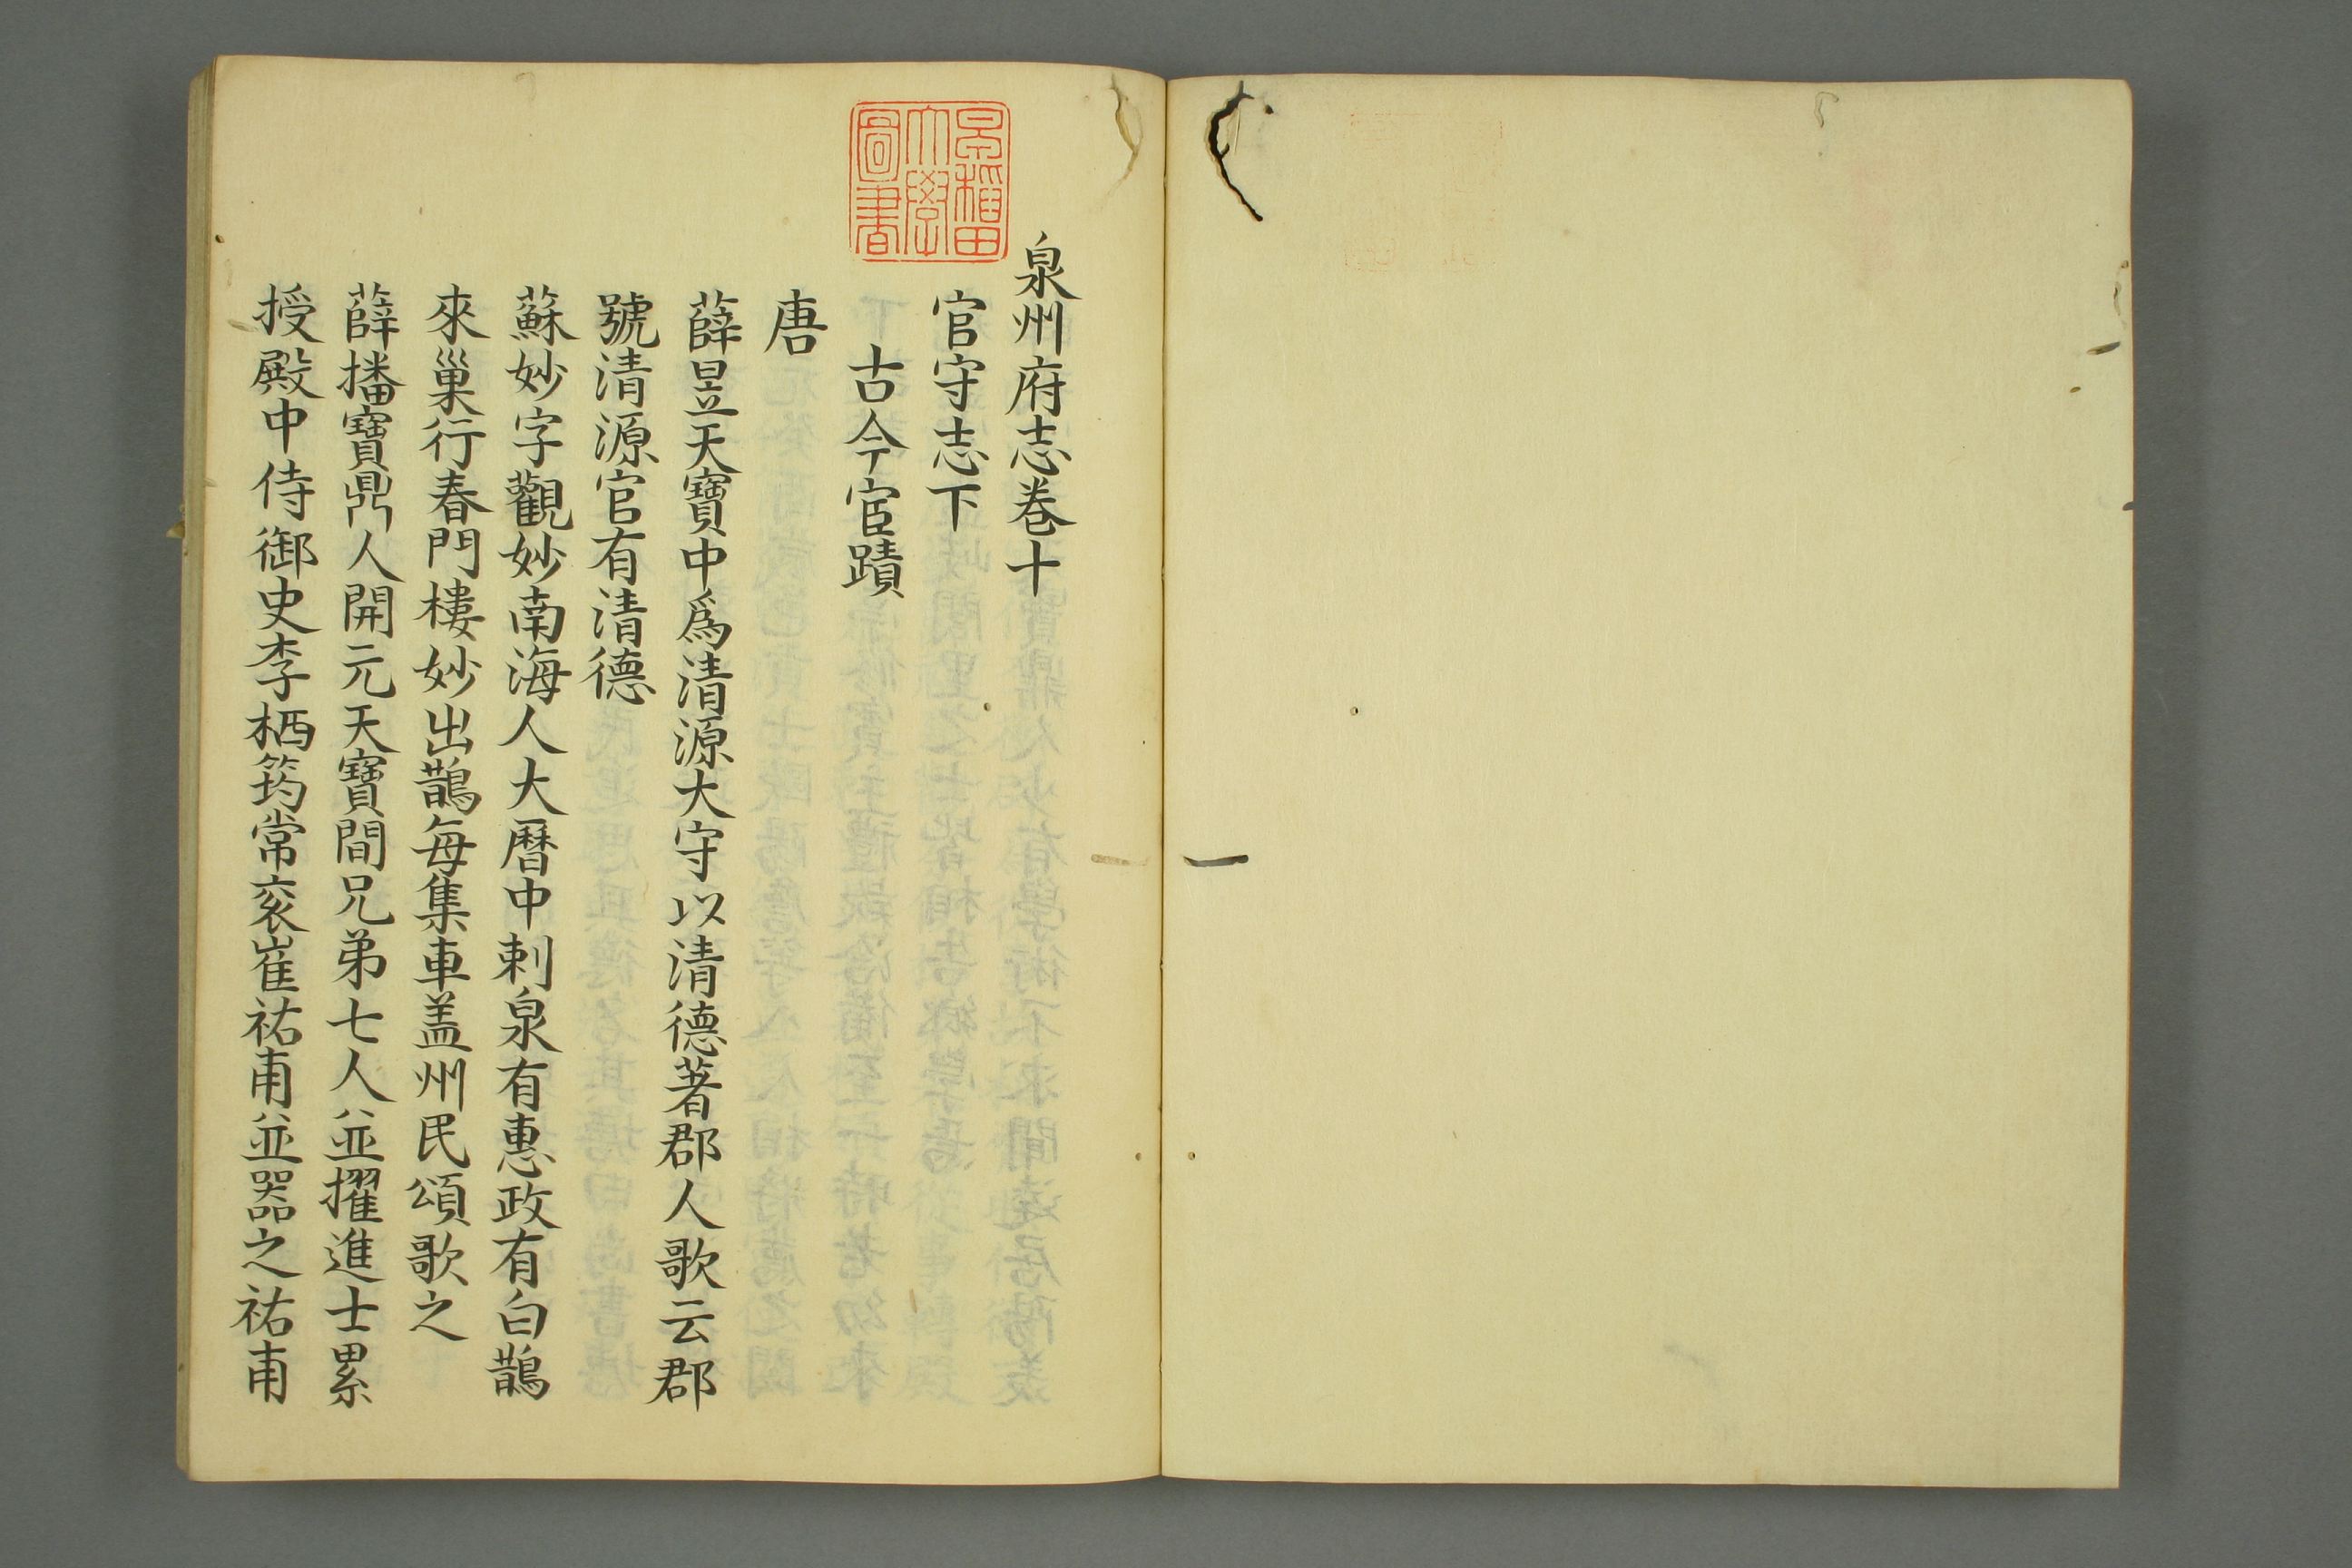 泉州府志巻十
官守志下
古今宦蹟
唐
薛昱天寶中爲清源大守以清德著郡人歌云郡
號清源官有清德
蘇妙字觀妙南海人大曆中刺泉有惠政有白鵲
來巢行春門樓妙出鵲每集車盖州民頌歌之
薛播寶鼎人開元天寶間兄弟七人並擢進士累
授殿中侍御史李栖筠常衮崔祐甫並器之祐甫
早稲田
大學
圖書